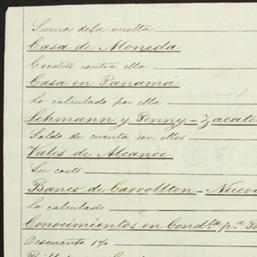 Suma de la vuelta
Casa de Moneda
Credito contra ella
Casa en Panamá
Lo calculado por ella
Lehmann y Penny - Zacate
Saldo de cuenta con ellos
Vales de Alcance
Su costo
Banco de Carrollton - Nueva
Lo calculado
Conocimientos en Cond.ta p.a
Descuento 1%